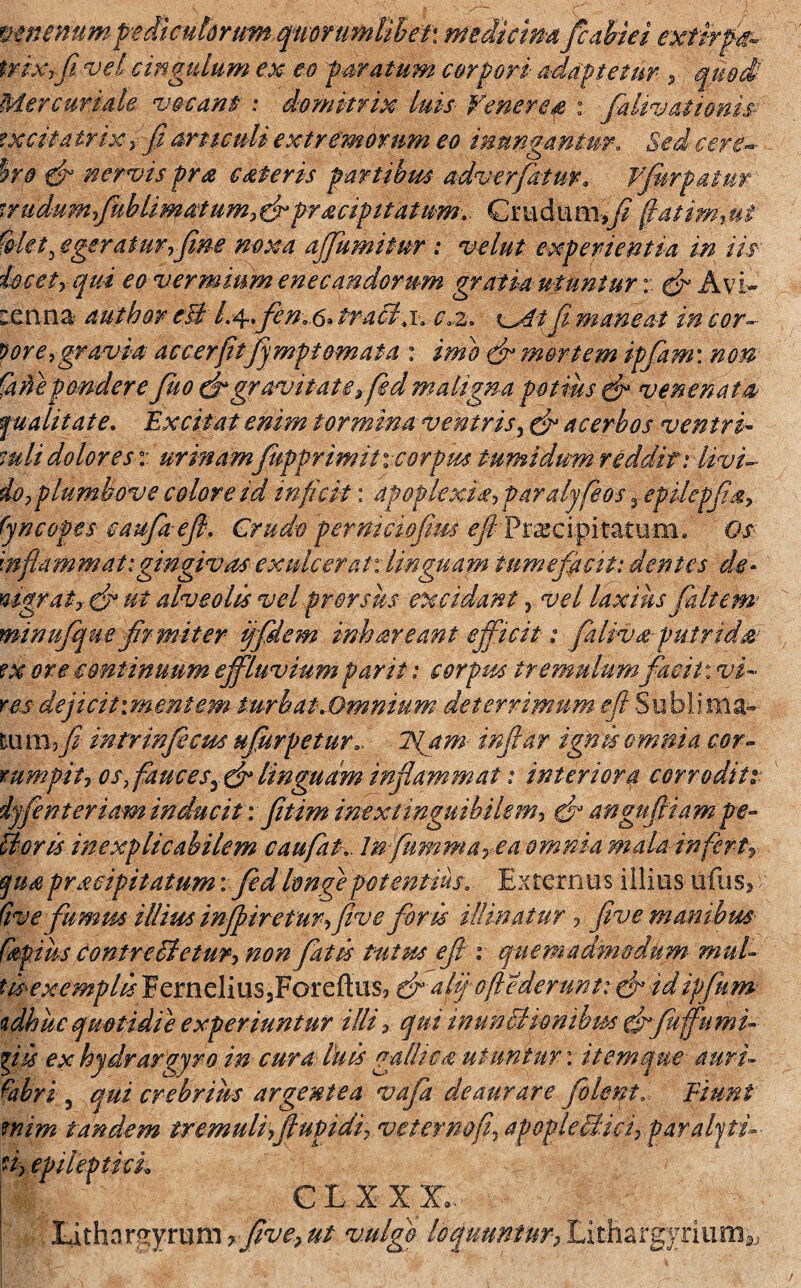 venenum pediculorum quorumlibet: medicina scabiei extirpa-
trix, si vel cingulum ex eo paratum corpori adaptetur, quod
Mercuriale vocant : domitrix luis Venereæ : salivationis
excitatrix, si articuli extremorum eo inungantur. Sed cere-
bro & nervis præ cæteris partibus adversatur. Vsurpatur
crudum, sublimatum, & præcipitatum. Crudum, si statim, ut
solet, egeratur, sine noxa assumitur : velut experientia in iis
docet, qui eo vermium enecandorum gratia utuntur : & Avi-
cenna author est l.4. fen. 6. tract. 1. c.2. At si maneat in cor-
pore, gravia accersit symptomata : imò & mortem ipsam: non
sanè pondere suo & gravitate, sed maligna potiùs & venenata
qualitate. Excitat enim tormina ventris, & acerbos ventri-
culi dolores : urinam supprimit : corpus tumidum reddit : livi-
do, plumbove colore id inficit : apoplexiæ, paralyseos, epilepsiæ,
syncopes causa est. Crudo perniciosius est Præcipitatum. Os
inflammat: gingivas exulcerat: linguam tumefacit: dentes de-
nigrat, & ut alveolis vel prorsùs excidant, vel laxiùs saltem
minusque firmiter ijsdem inhæreant efficit : salivæ putridæ
ex ore continuum effluvium parit : corpus tremulum facit: vi-
res dejicit: mentem turbat. Omnium deterrimum est Sublima-
tum, si intrinsecus usurpetur. Nam instar ignis omnia cor-
rumpit, os, fauces, & linguam inflammat : interiora corrodit:
dysenteriam inducit : sitim inextinguibilem, & angustiam pe-
ctoris inexplicabilem causat. In summa, ea omnia mala infert,
quæ præcipitatum : sed longè potentiùs. Externus illius usus,
sive fumus illius inspiretur, sive foris illinatur, sive manibus
sæpiùs contrectetur, non satis tutus est : quemadmodum mul-
tis exemplis Fernelius, Forestus, & alij ostēderunt: & id ipsum
adhuc quotidie experiuntur illi, qui inunctionibus & suffumi-
giis ex hydrargyro in cura luis gallicæ utuntur : itemque auri-
fabri, qui crebriùs argentea vasa deaurare solent. Fiunt
enim tandem tremuli, stupidi, veternosi, apoplectici, paralyti-
ci, epileptici.
CLXXX.
Lithargyrum, sive, ut vulgò loquuntur, Lithargyrium,